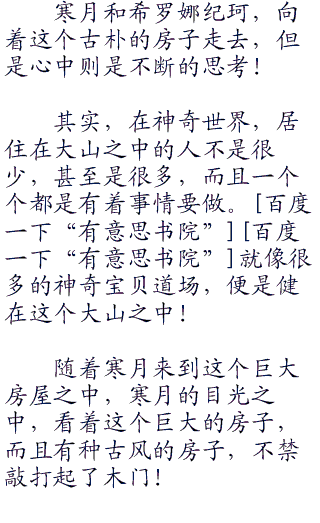 寒月和希罗娜纪珂，向
着这个古朴的房子走去，但
是心中则是不断的思考！
其实，在神奇世界，居
住在大山之中的人不是很
少，甚至是很多，而且一个
个都是有着事情要做。[百度
一下“有意思书院”][百度
一下“有意思书院”]就像很
多的神奇宝贝道场，便是健
在这个大山之中！
随着寒月来到这个巨大
房屋之中，寒月的目光之
中，看着这个巨大的房子，
而且有种古风的房子，不禁
敲打起了木门！